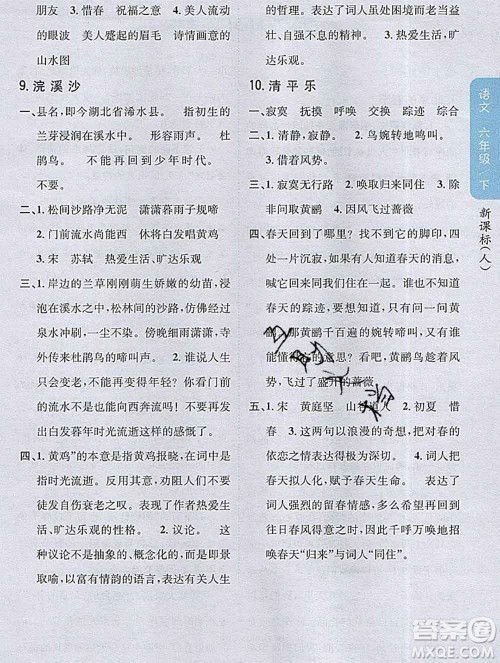 美　4. 惜春　祝福　5. 流动的
的眼波　美人蹙起的眉毛　诗情画意的
山水图
9. 浣溪沙
一、县名，即今湖北省浠水县。　指初生的
兰芽浸润在溪水中。　形容雨声。　杜
鹃鸟　不能　再回到少年时　能够
不要
二、1. 松间沙路净无泥　潇潇暮雨子规啼
2. 门前流水尚能西　休将白发唱黄鸡
3. 宋　苏轼　热爱生活、旷达乐观
三、1. 岸边的兰草刚刚萌生娇嫩的幼苗，浸
泡在溪水之中，松林间的沙路，仿佛经过
泉水冲刷，一尘不染，傍晚细雨潇潇，寺
外传来了杜鹃鸟的叫声。　2. 谁说人生
就不能再回到年轻时期？门前的溪水
都还能向西边奔流呢！不要在老年因
感叹时光流逝而自伤
白白发暮年时光流逝的感慨！
四、1. “黄鸡”的本意是指黄鸡报晓，在词中是
指时光流逝。　反用其意，劝阻人们不要
徒自伤衰老之叹。表现了作者热爱生
活、旷达乐观的性格。　2. 议论。　议
论不是抽象的、概念化的，而是即景
取喻，以富有情韵的语言，表达有关人生
的哲理。表达了词人虽处困境而力求
自强不息的精神，表现了热爱生活、
旷达乐观。
10. 清平乐
一、寂寞　抚摸　呼唤　交际　踪迹　综合
二、1. 清静，寂静。　2. 鸟婉转地鸣叫。
3. 借着风势。
三、1. 寂寞无行路　2. 唤取归来同住
3. 百啭无人能解　4. 因风飞过蔷薇
四、春天回到了哪里？找不到它的脚印，四
处一片沉寂，如果有人知道春天的消
息，喊它回来同我住在一起。谁知道
春天的踪迹，要想知道，只有问一问黄
鹂，那黄鹂千百遍的婉转啼叫，又有谁
能懂得它的意思？看吧，黄鹂鸟趁着风
势，飞过了盛开的蔷薇
五、1. 宋　黄庭坚　山谷道人　2. 初夏　惜
春　3. 这两句以浪漫的想象，把对春的
依恋之情表达得极为深切。　4. 词人把
春天拟人化，赋予春天生命。表达了
词人强烈的留春情感，多么希望能够再
有往日春风花开，如此千呼万唤地招
唤春天“归来”与词人“同住”。
语文　六年级／下
新课标（人）
答案圈
MXQE.COM